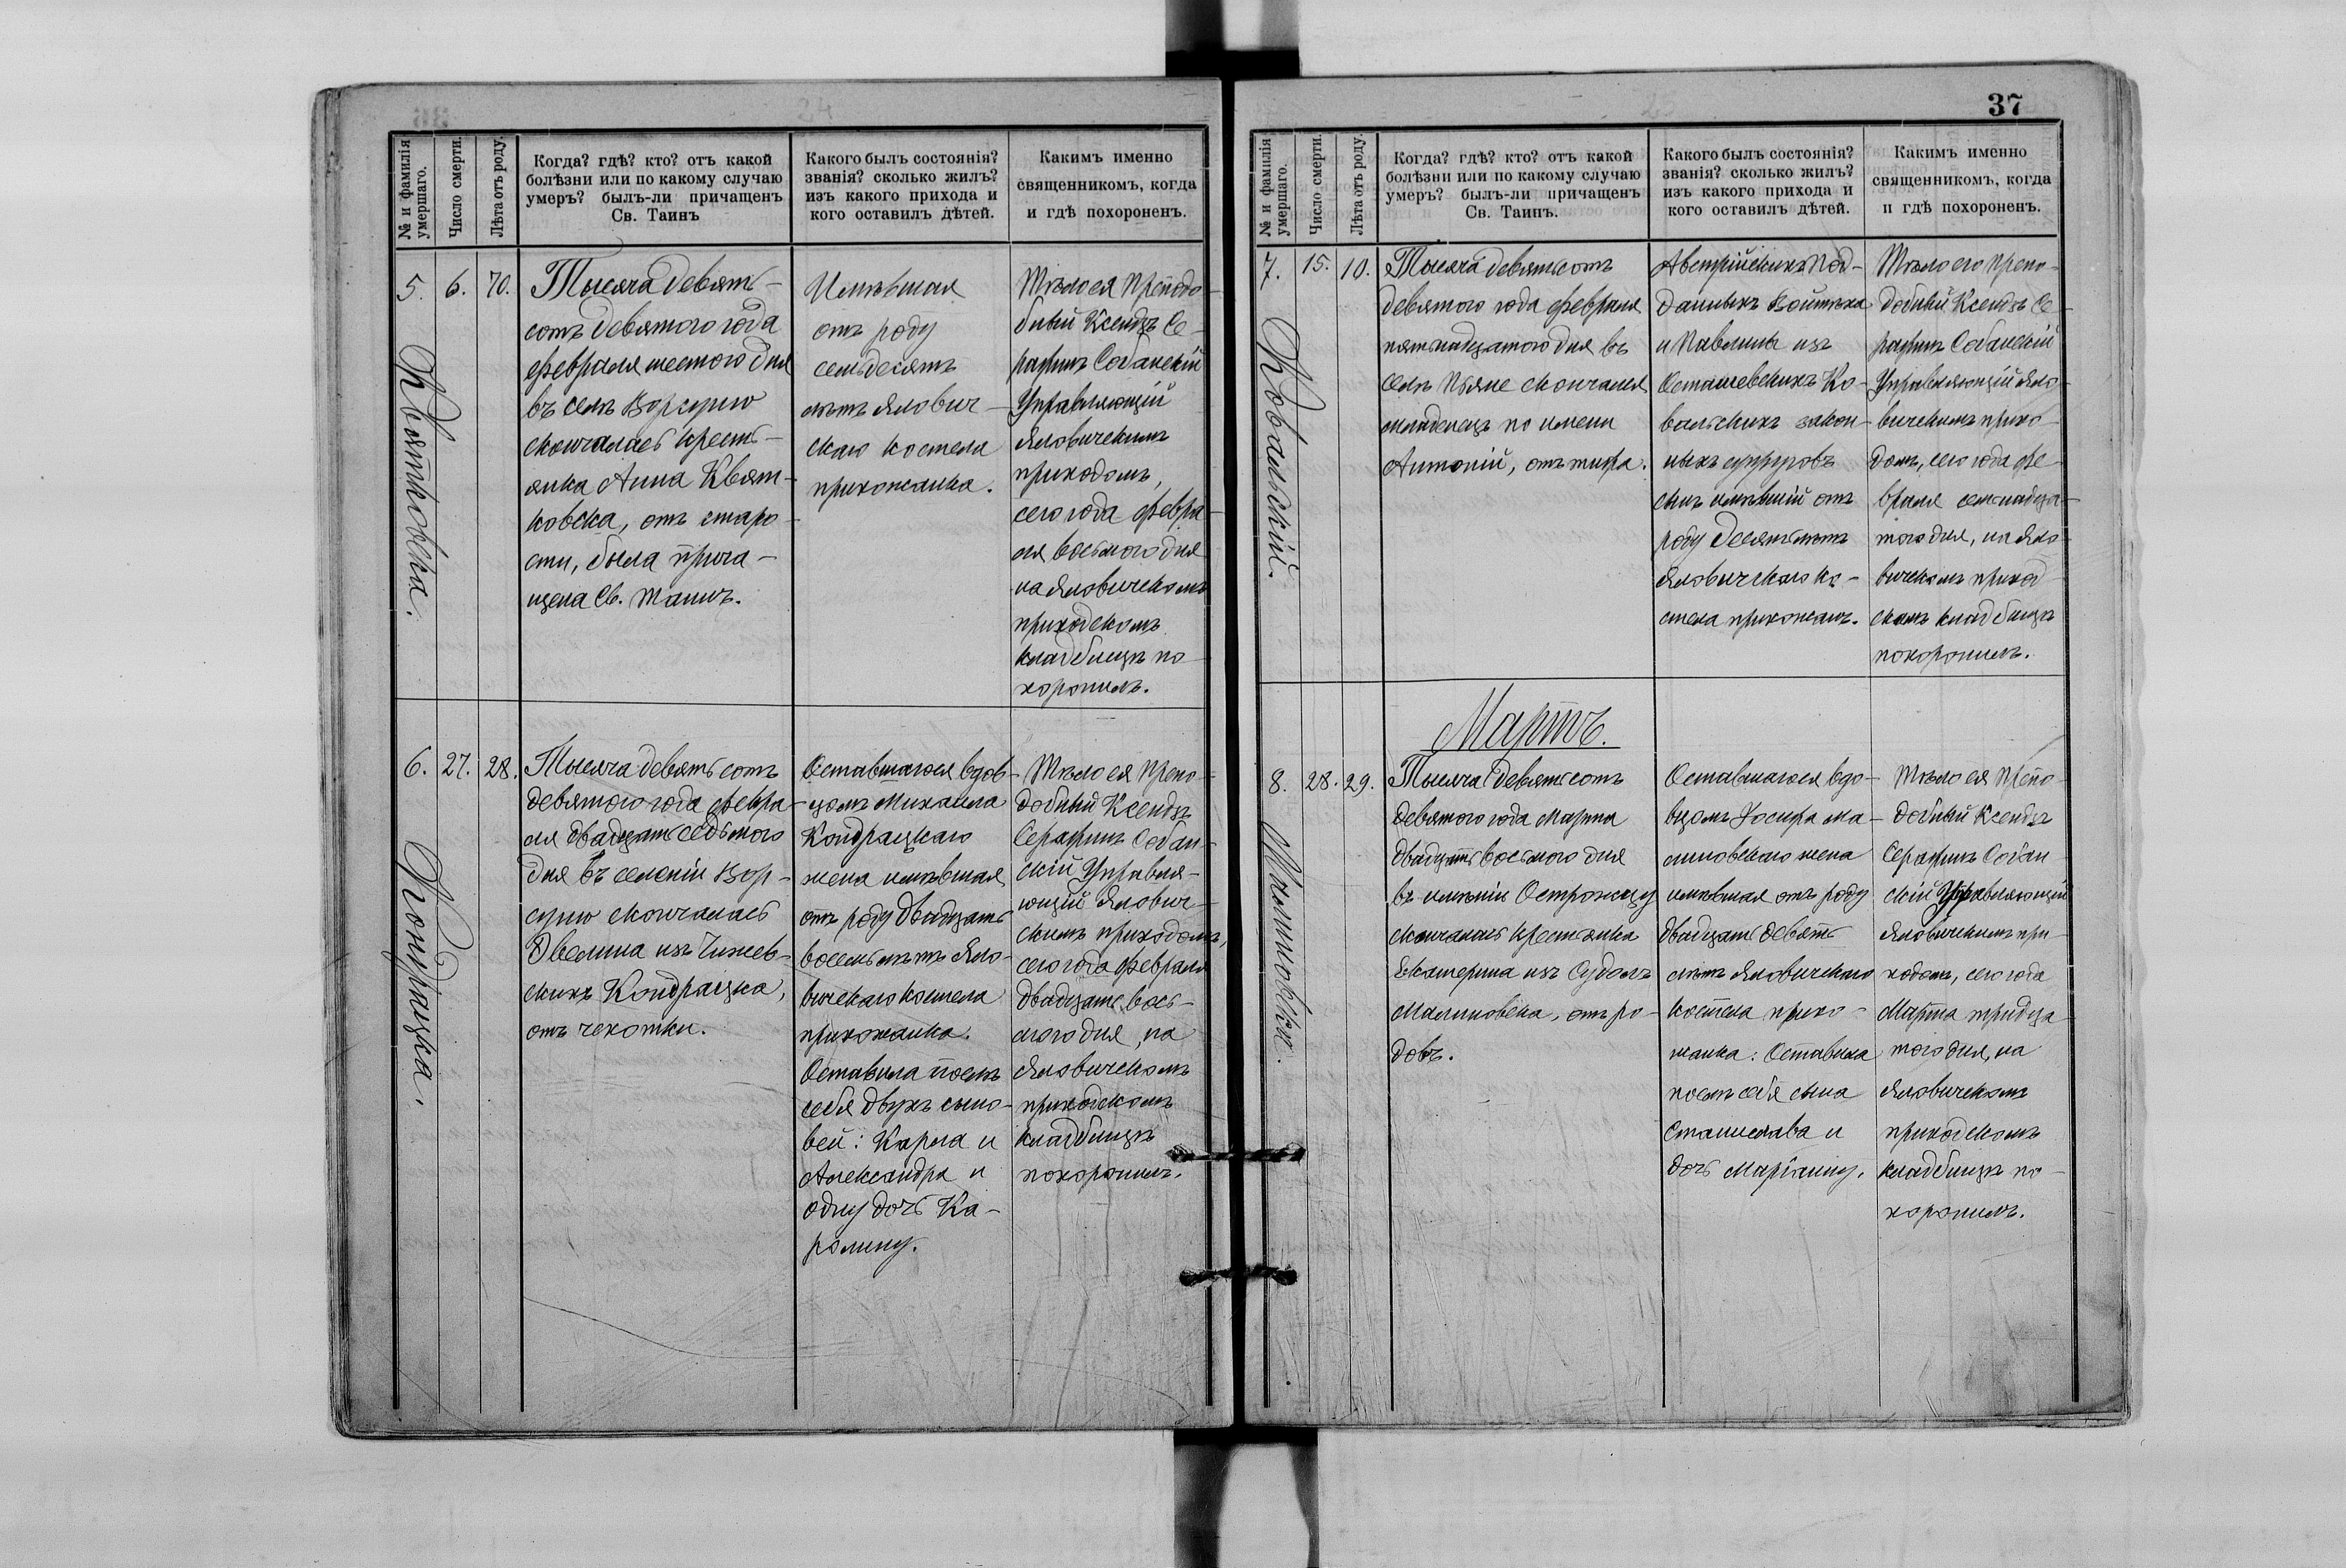 № и фамилія умершаго.
Число смерти.
Лѣта отъ роду.
Когда? гдѣ? кто? отъ какой
болѣзни или по какому случаю
умеръ? былъ-ли причащенъ
Св. Таинъ
Какого былъ состоянія?
званія? сколько жилъ?
изъ какого прихода и
кого оставилъ дѣтей.
Какимъ именно
священникомъ, когда
и гдѣ похороненъ.
5.
Квятковска.
6.
70.
Тысяча девять-
сотъ девятого года
февраля шестого дня
въ селѣ Ворсуню
скончалась кресть-
янка Анна Квят-
ковска, отъ старо-
сти, была прича-
щена Св. Таинъ.
Имѣвшая
отъ роду
семьдесятъ
лѣтъ Ялович-
скаго костела
прихожанка.
Тѣло ея Преподо-
бный Ксендзъ Се-
рафимъ Собанскій
Управляющій
Яловичскимъ
приходомъ,
сего года февра-
ля восьмого дня
на Яловичскомъ
приходскомъ
кладбищѣ по-
хоронилъ.
6.
Кондрацка.
27.
28.
Тысяча девятьсотъ
девятого года февра-
ля двадцать седьмого
дня въ селеніи Вор-
суню скончалась
Эвелина изъ Чижев-
скихъ Кондрацка,
отъ чехотки.
Оставшагося вдов-
цомъ Михаила
Кондрацкаго
жена имѣвшая
отъ роду двадцать
восемь лѣтъ Яло-
вичскаго костела
прихожанка.
Оставила послѣ
себя двухъ сыно-
вей: Карла и
Александра и
одну дочь Ка-
ролину.
Тѣло ея Препо-
добный Ксендзъ
Серафимъ Собан-
скій Управля-
ющій Ялович-
скимъ приходомъ,
сего года февраля
двадцать вось-
мого дня, на
Яловичскомъ
приходскомъ
кладбищѣ
похоронилъ.
37
№ и фамилія умершаго.
Число смерти.
Лѣта отъ роду.
Когда? гдѣ? кто? отъ какой
болѣзни или по какому случаю
умеръ? былъ-ли причащенъ
Св. Таинъ.
Какого былъ состоянія?
званія? сколько жилъ?
изъ какого прихода и
кого оставилъ дѣтей.
Какимъ именно
священникомъ, когда
и гдѣ похороненъ.
7.
Ковальскій.
15.
10.
Тысяча девятьсотъ
девятого года февраля
пятнадцатого дня въ
селѣ Пьяне скончался
младенецъ по имени
Антоній, отъ тифа.
Австрійскихъ Под-
данныхъ Войтѣха
и Павлины изъ
Осташевскихъ Ко-
вальскихъ закон-
ныхъ супруговъ
сынъ имѣвшій отъ
роду десять лѣтъ
Яловичскаго ко-
стела прихожан.
Тѣло его препо-
добный Ксендзъ Се-
рафимъ Собанскій
Управляющій Яло-
вичскимъ прихо-
домъ, сего года фе-
враля семнадца-
того дня, на Яло-
вичскомъ приход-
скомъ кладбищѣ
похоронилъ.
Мартъ.
8.
Малиновска.
28.
29.
Тысяча девятьсотъ
девятого года Марта
двадцать восьмого дня
въ имѣніи Острожцу
скончалась крестьянка
Екатерина изъ Судолъ
Малиновска, отъ ро-
довъ.
Оставшагося вдо-
вцомъ Іосифа Ма-
линовскаго жена
имѣвшая отъ роду
двадцать девять
лѣтъ Яловичскаго
костела прихо-
жанка: Оставила
послѣ себя сына
Станислава и
дочь Маріанну.
Тѣло ея Препо-
добный Ксендзъ
Серафимъ Собан-
скій Управляющій
Яловичскимъ при-
ходомъ, сего года
Марта тридца
того дня, на
Яловичскомъ
приходскомъ
кладбищѣ по-
хоронилъ.